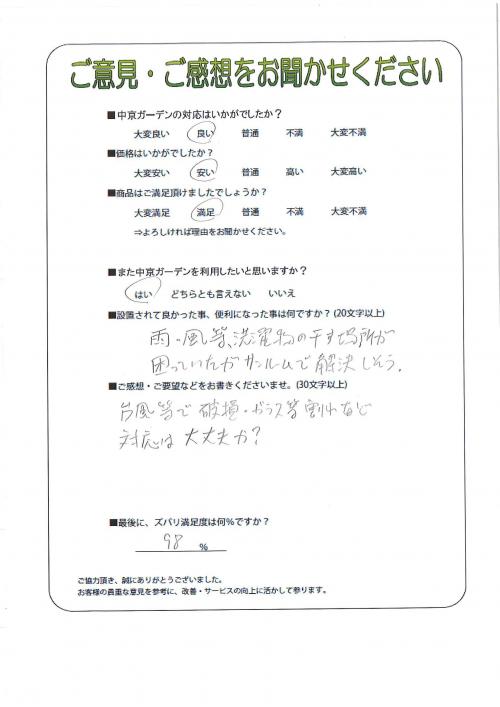 ご意見・ご感想をお聞かせください
■中京ガーデンの対応はいかがでしたか？
大変良い 良い 普通 不満 大変不満
■価格はいかがでしたか？
大変安い 安い 普通 高い 大変高い
■商品はご満足頂けましたでしょうか？
大変満足 満足 普通 不満 大変不満
⇒よろしければ理由をお聞かせください。
■また中京ガーデンを利用したいと思いますか？
はい どちらとも言えない いいえ
■設置されて良かった事、便利になった事は何ですか？(20文字以上)
雨・風等、洗濯物の干す場所が
困っていたがサンルームで解決しそう。
■ご感想・ご要望などをお書きくださいませ。(30文字以上)
台風等で破損・ガラス等割れなど
対応は大丈夫か？
■最後に、ズバリ満足度は何％ですか？
98 ％
ご協力頂き、誠にありがとうございました。
お客様の貴重な意見を参考に、改善・サービスの向上に活かして参ります。